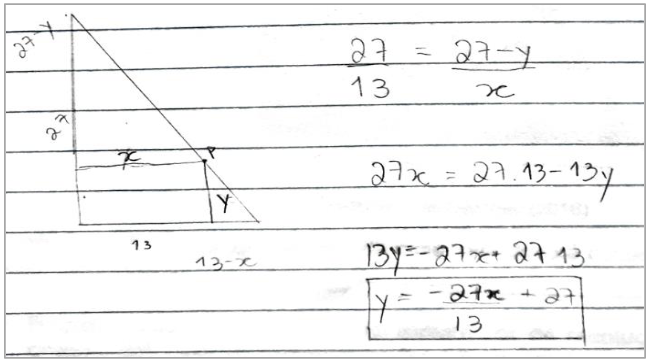 27-y
x
P
y
13
13-x
27/13 = 27-y/x
27x = 27.13-13y
13y=-27x+27 13
y = -27x/13 + 27